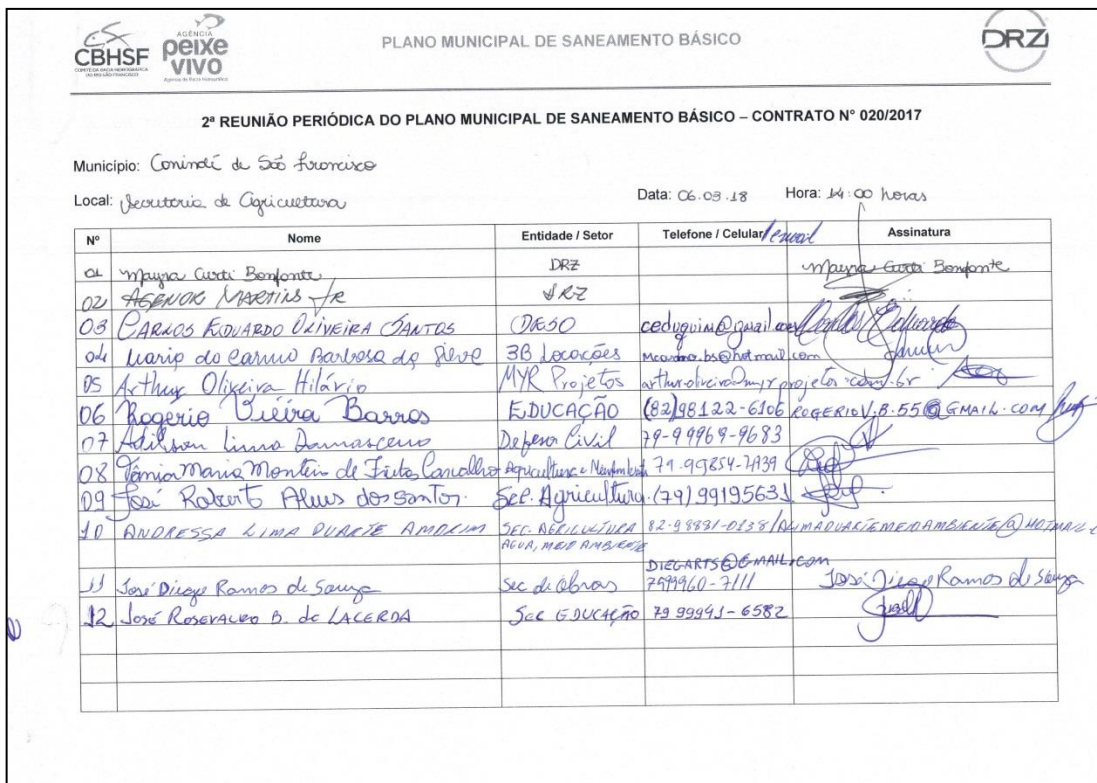 CBHSF
COMITÊ DA BACIA HIDROGRÁFICA
DO RIO SÃO FRANCISCO
AGÊNCIA
peixe
VIVO
Agência de Bacia Hidrográfica
PLANO MUNICIPAL DE SANEAMENTO BÁSICO
DRZ
2ª REUNIÃO PERIÓDICA DO PLANO MUNICIPAL DE SANEAMENTO BÁSICO – CONTRATO N° 020/2017
Município: Conindé de São Francisco
Local: Secretaria de Agricultura Data: 06.03.18 Hora: 14:00 horas
Nº Nome Entidade / Setor Telefone / Celular/email Assinatura
01 Mayra Curti Bonfante DRZ Mayra Curti Bonfante
02 AGENOR MARTINS JR DRZ
03 CARLOS EDUARDO OLIVEIRA SANTOS DESO ceduquim@gmail.com Carlos Eduardo
04 Maria do Carmo Barbosa da Silva 3B Locações
05 Arthur Oliveira Hilário MYR Projetos arthur.oliveira@myrprojetos.com.br
06 Rogerio Vieira Barros EDUCAÇÃO (82)98122-6106 ROGERIOV.B.55@GMAIL.COM
07 Adilson Lima Damasceno Defesa Civil 79-99969-9683
08 Tâmia Maria Monteiro de Freitas Carvalho Agricultura e 79.99854-7439
09 José Robert Alves dos Santos. Sec. Agricultura. (79)99195631
10 ANDRESSA LIMA DUARTE AMORIM SEC. AGRICULTURA 82-98881-0138/ALIMADUARTEMEIOAMBIENTE@HOTMAIL.C
AGUA, MEIO AMBIENTE
DIEGARTS@GMAIL.COM
11 José Diego Ramos de Souza Sec de Obras 7999960-7111 José Diego Ramos de Souza
12 José ROSEVALDO B. de LACERDA Sec EDUCAÇÃO 79 99941-6582